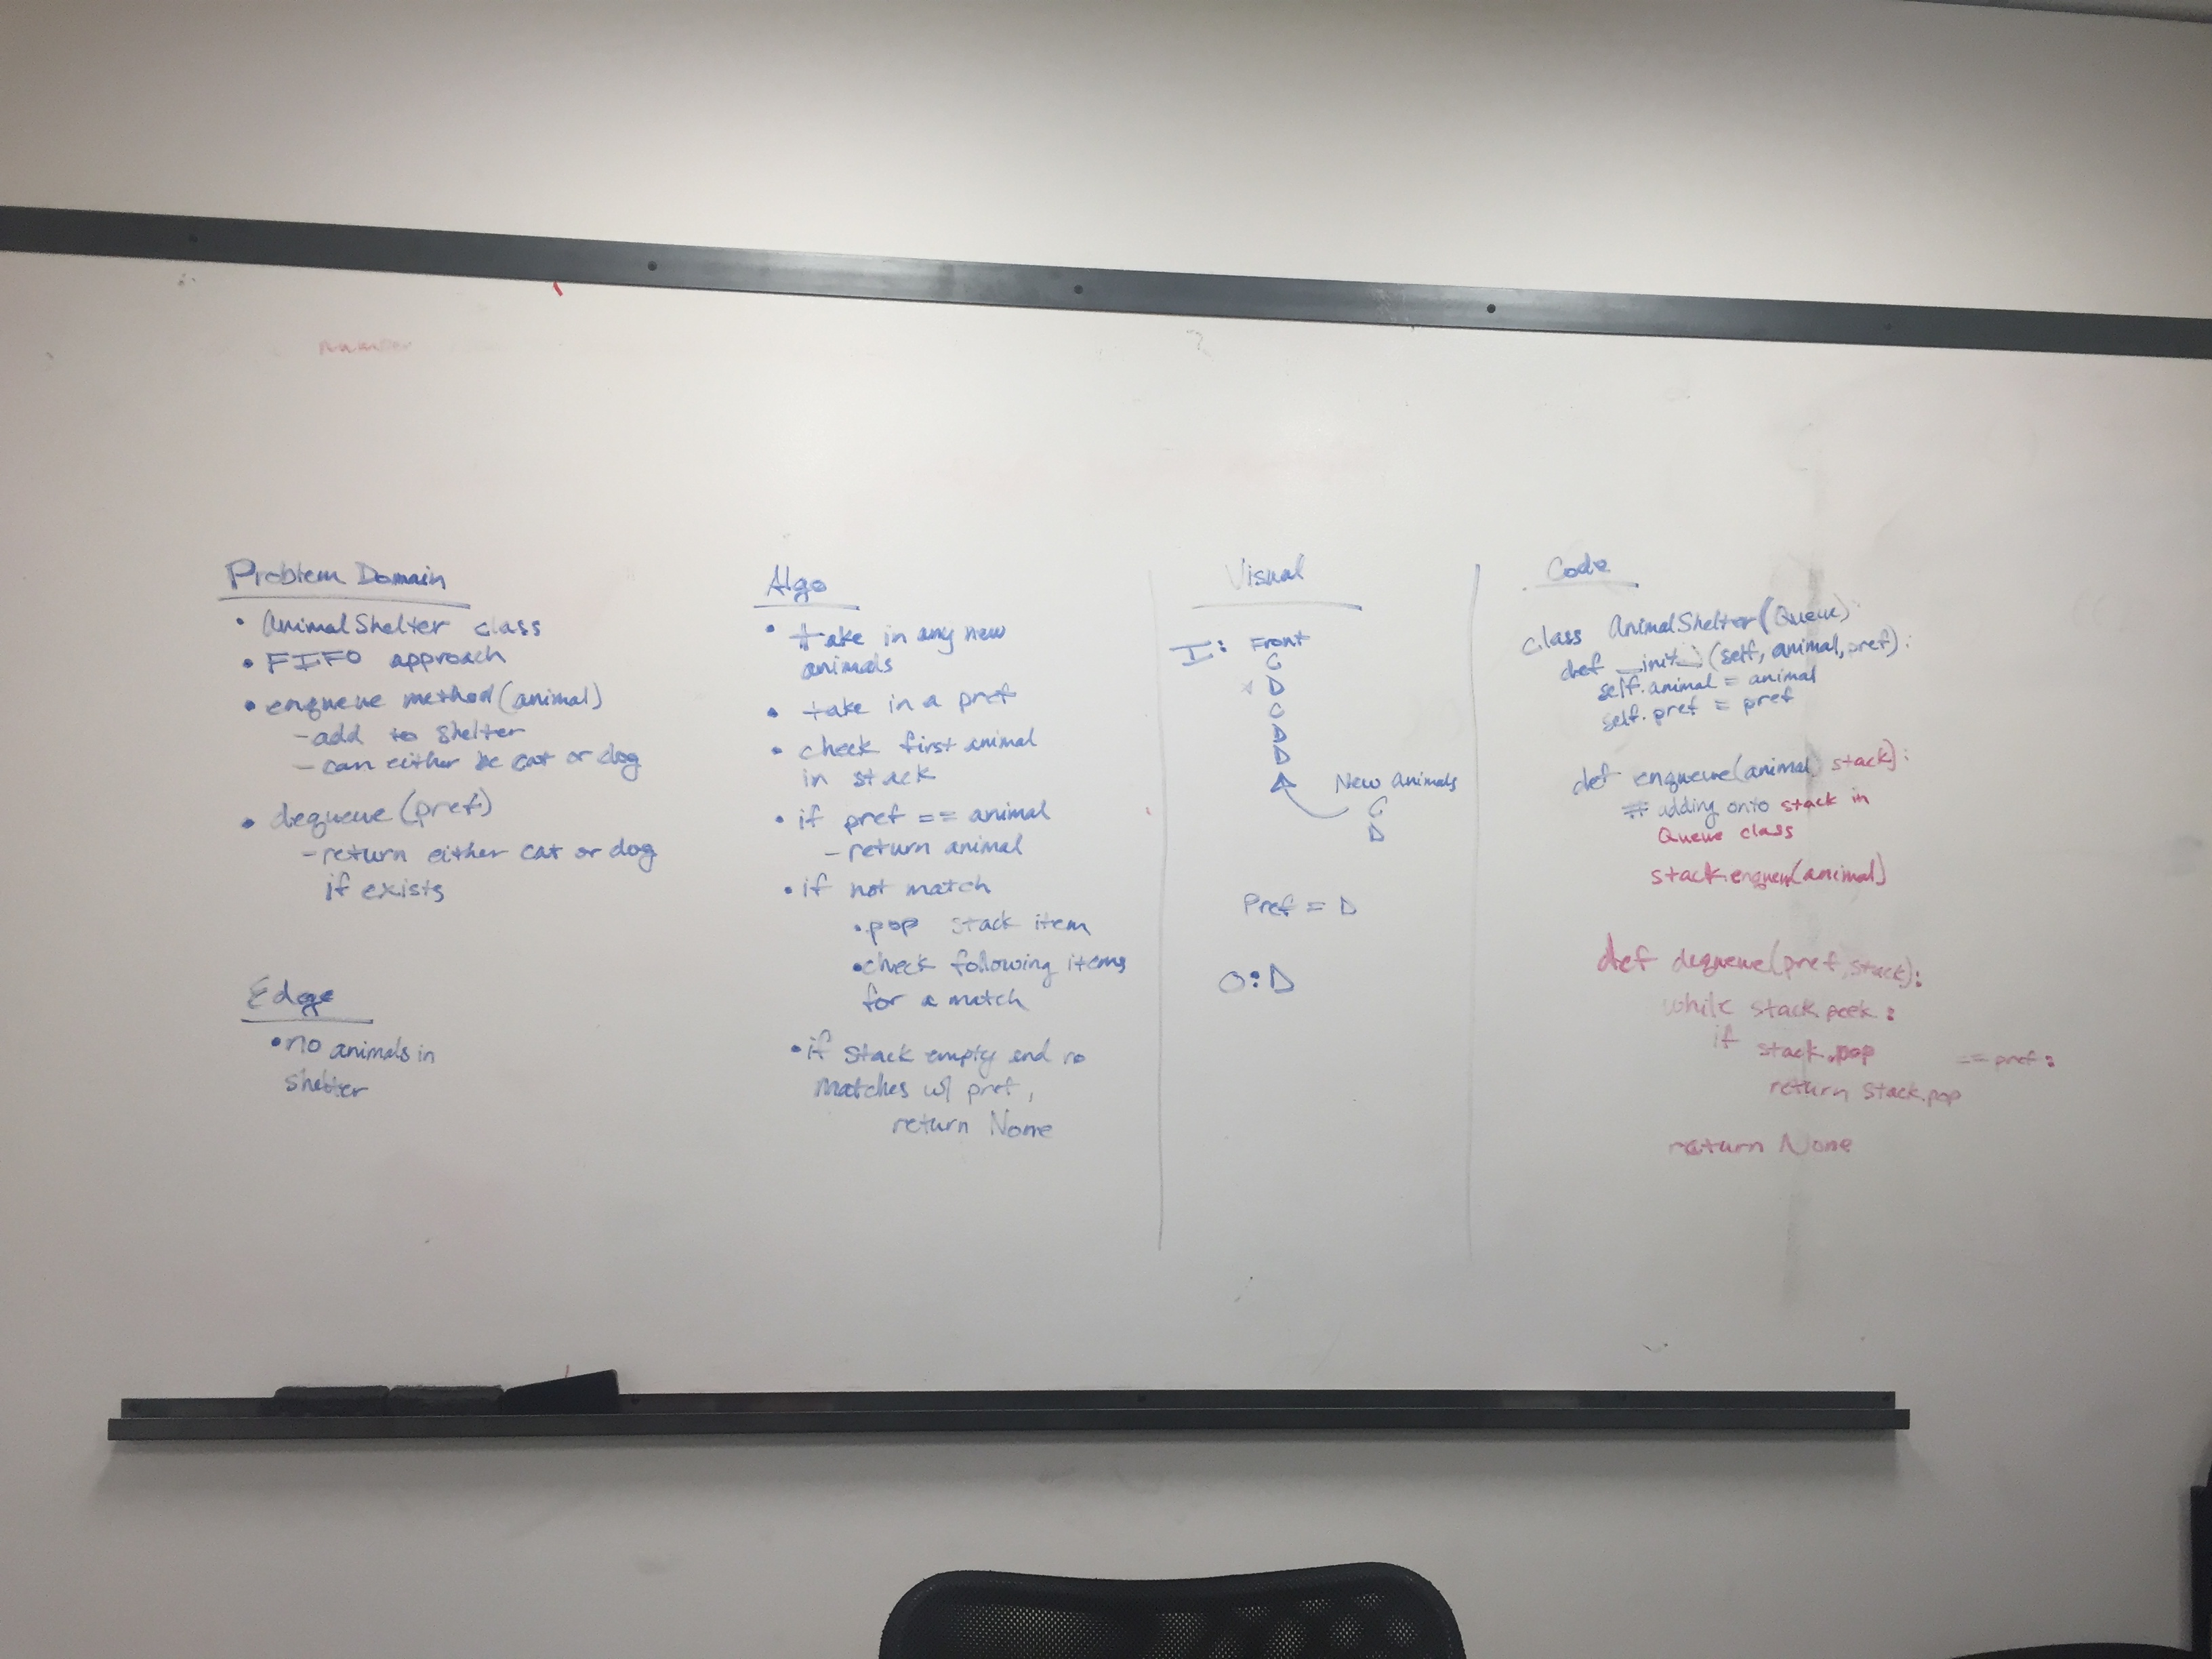 Problem Domain
• AnimalShelter class
• FIFO approach
• enqueue method(animal)
- add to shelter
- can either be cat or dog
• dequeue (pref)
- return either cat or dog
if exists
Edge
• no animals in
shelter
Algo
• take in any new
animals
• take in a pref
• check first animal
in stack
• if pref == animal
- return animal
• if not match
• pop stack item
• check following items
for a match
• if stack empty and no
matches w/ pref,
return None
Visual
I: Front
C
D
C
D
D
New Animals
C
D
Pref = D
O: D
Code
class AnimalShelter(Queue)
def __init__(self, animal, pref):
self.animal = animal
self.pref = pref
def enqueue(animal, stack):
# adding onto stack in
Queue class
stack.enqueue(animal)
def dequeue(pref, stack):
while stack.peek:
if stack.pop == pref:
return stack.pop
return None